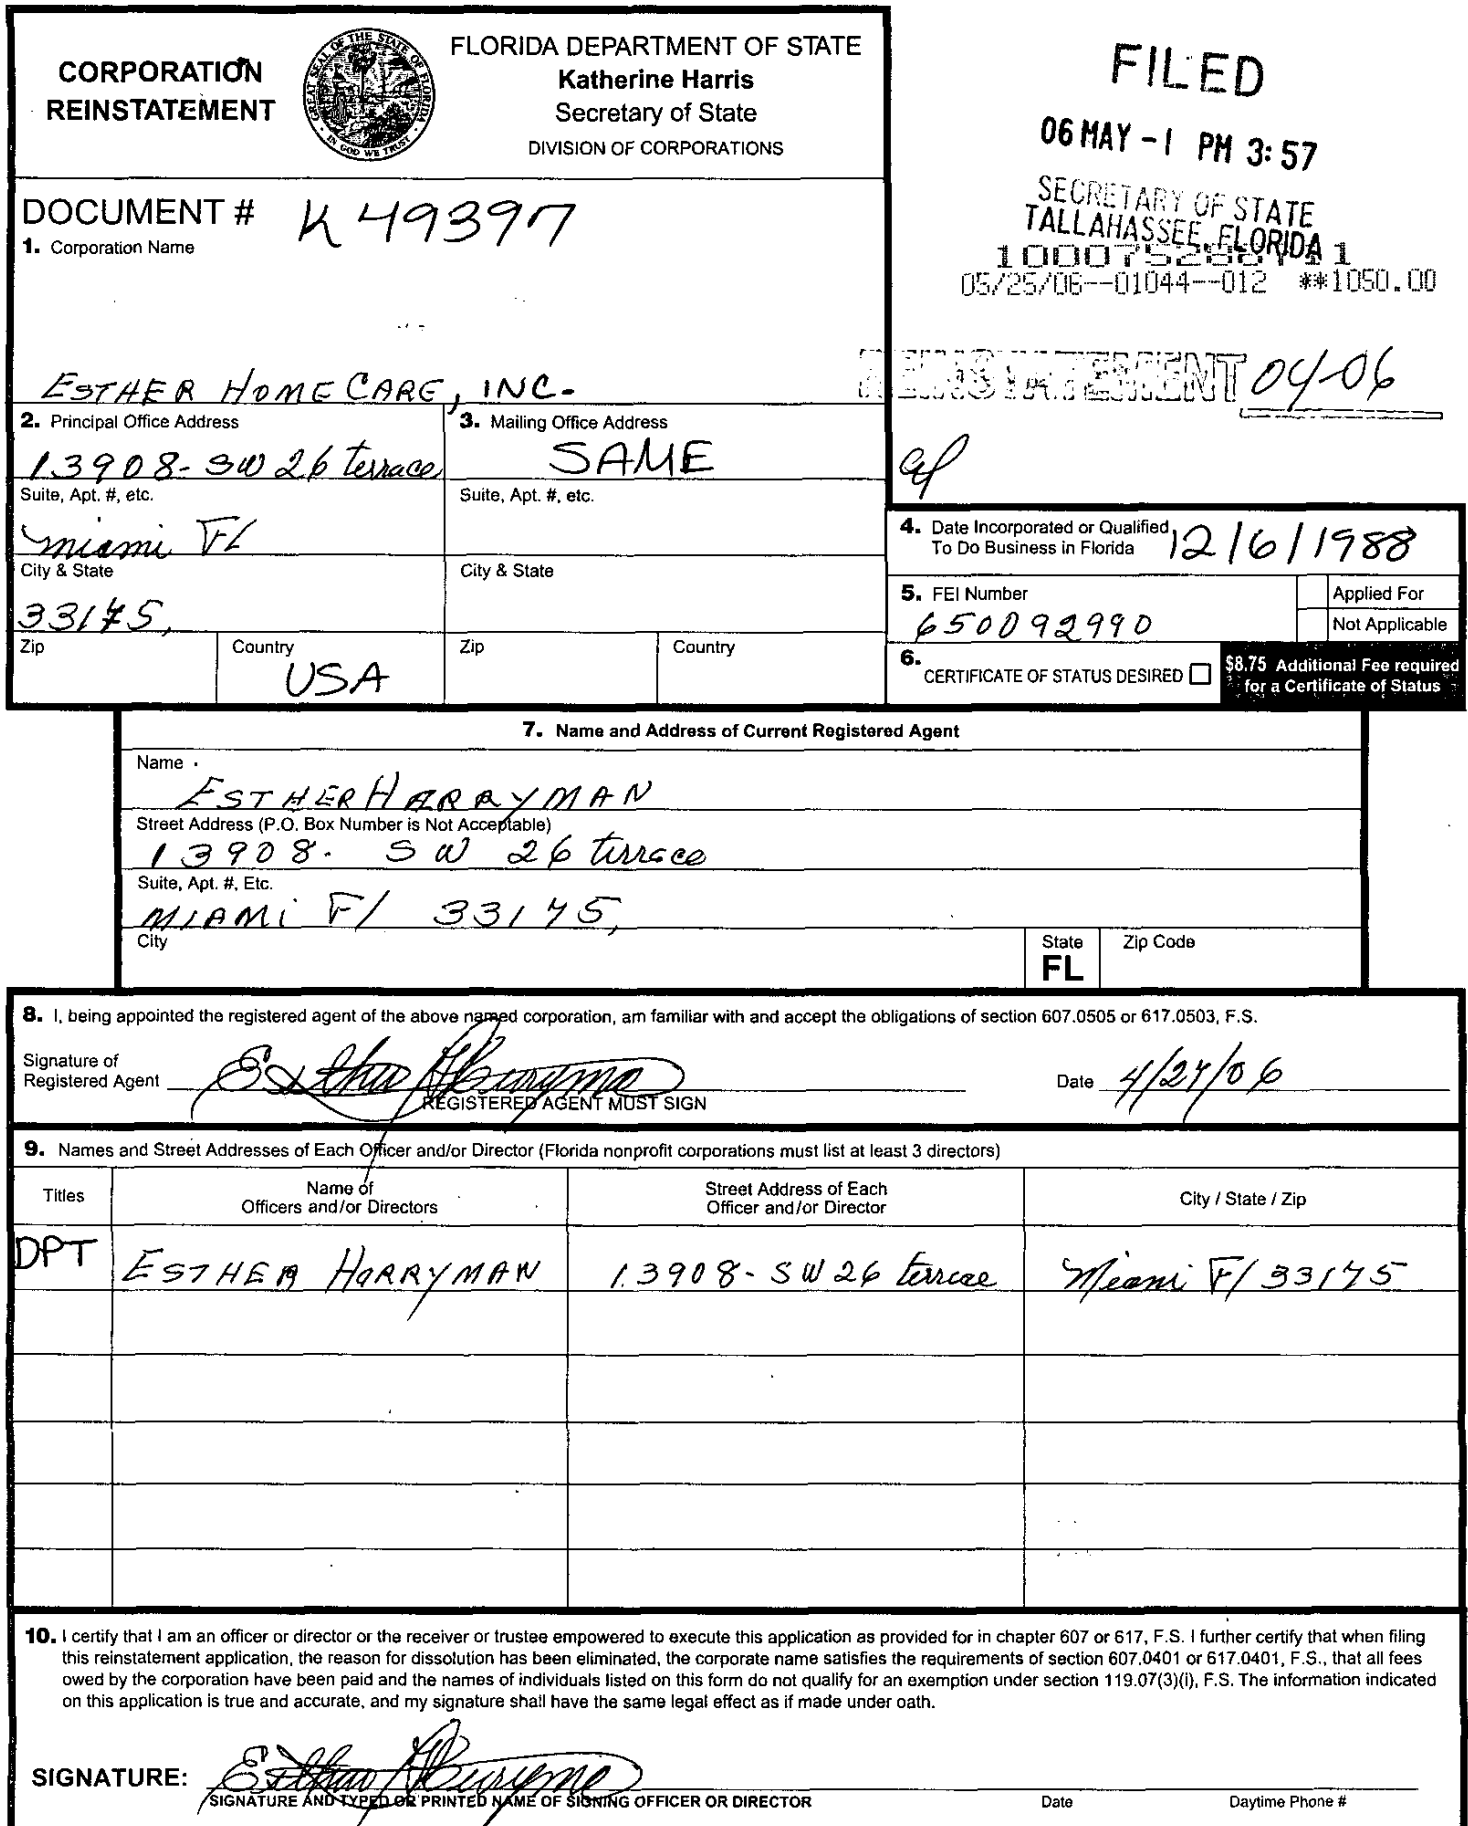 CORPORATION
REINSTATEMENT
GREAT SEAL OF THE STATE OF FLORIDA
IN GOD WE TRUST
FLORIDA DEPARTMENT OF STATE
Katherine Harris
Secretary of State
DIVISION OF CORPORATIONS
FILED
06 MAY -1 PM 3:57
SECRETARY OF STATE
TALLAHASSEE, FLORIDA
05/25/06--01044--012 **1050.00
REINSTATEMENT 04-06
DOCUMENT # K49397
1. Corporation Name
ESTHER HOME CARE, INC.
2. Principal Office Address
13908- SW 26 terrace
Suite, Apt. #, etc.
Miami FL
City & State
33175,
Zip
Country
USA
3. Mailing Office Address
SAME
Suite, Apt. #, etc.
City & State
Zip
Country
4. Date Incorporated or Qualified
To Do Business in Florida
12/6/1988
5. FEI Number
650092990
Applied For
Not Applicable
6. CERTIFICATE OF STATUS DESIRED
$8.75 Additional Fee required
for a Certificate of Status
7. Name and Address of Current Registered Agent
Name
ESTHER HARRYMAN
Street Address (P.O. Box Number is Not Acceptable)
13908- SW 26 terrace
Suite, Apt. #, Etc.
MIAMI Fl 33175,
City
State
FL
Zip Code
8. I, being appointed the registered agent of the above named corporation, am familiar with and accept the obligations of section 607.0505 or 617.0503, F.S.
Signature of
Registered Agent
Esther Harryman
REGISTERED AGENT MUST SIGN
Date 4/27/06
9. Names and Street Addresses of Each Officer and/or Director (Florida nonprofit corporations must list at least 3 directors)
Titles
Name of
Officers and/or Directors
Street Address of Each
Officer and/or Director
City / State / Zip
DPT ESTHER HARRYMAN 13908- SW 26 terrace Miami Fl 33175
10. I certify that I am an officer or director or the receiver or trustee empowered to execute this application as provided for in chapter 607 or 617, F.S. I further certify that when filing
this reinstatement application, the reason for dissolution has been eliminated, the corporate name satisfies the requirements of section 607.0401 or 617.0401, F.S., that all fees
owed by the corporation have been paid and the names of individuals listed on this form do not qualify for an exemption under section 119.07(3)(i), F.S. The information indicated
on this application is true and accurate, and my signature shall have the same legal effect as if made under oath.
SIGNATURE: Esther Harryman
SIGNATURE AND TYPED OR PRINTED NAME OF SIGNING OFFICER OR DIRECTOR
Date
Daytime Phone #